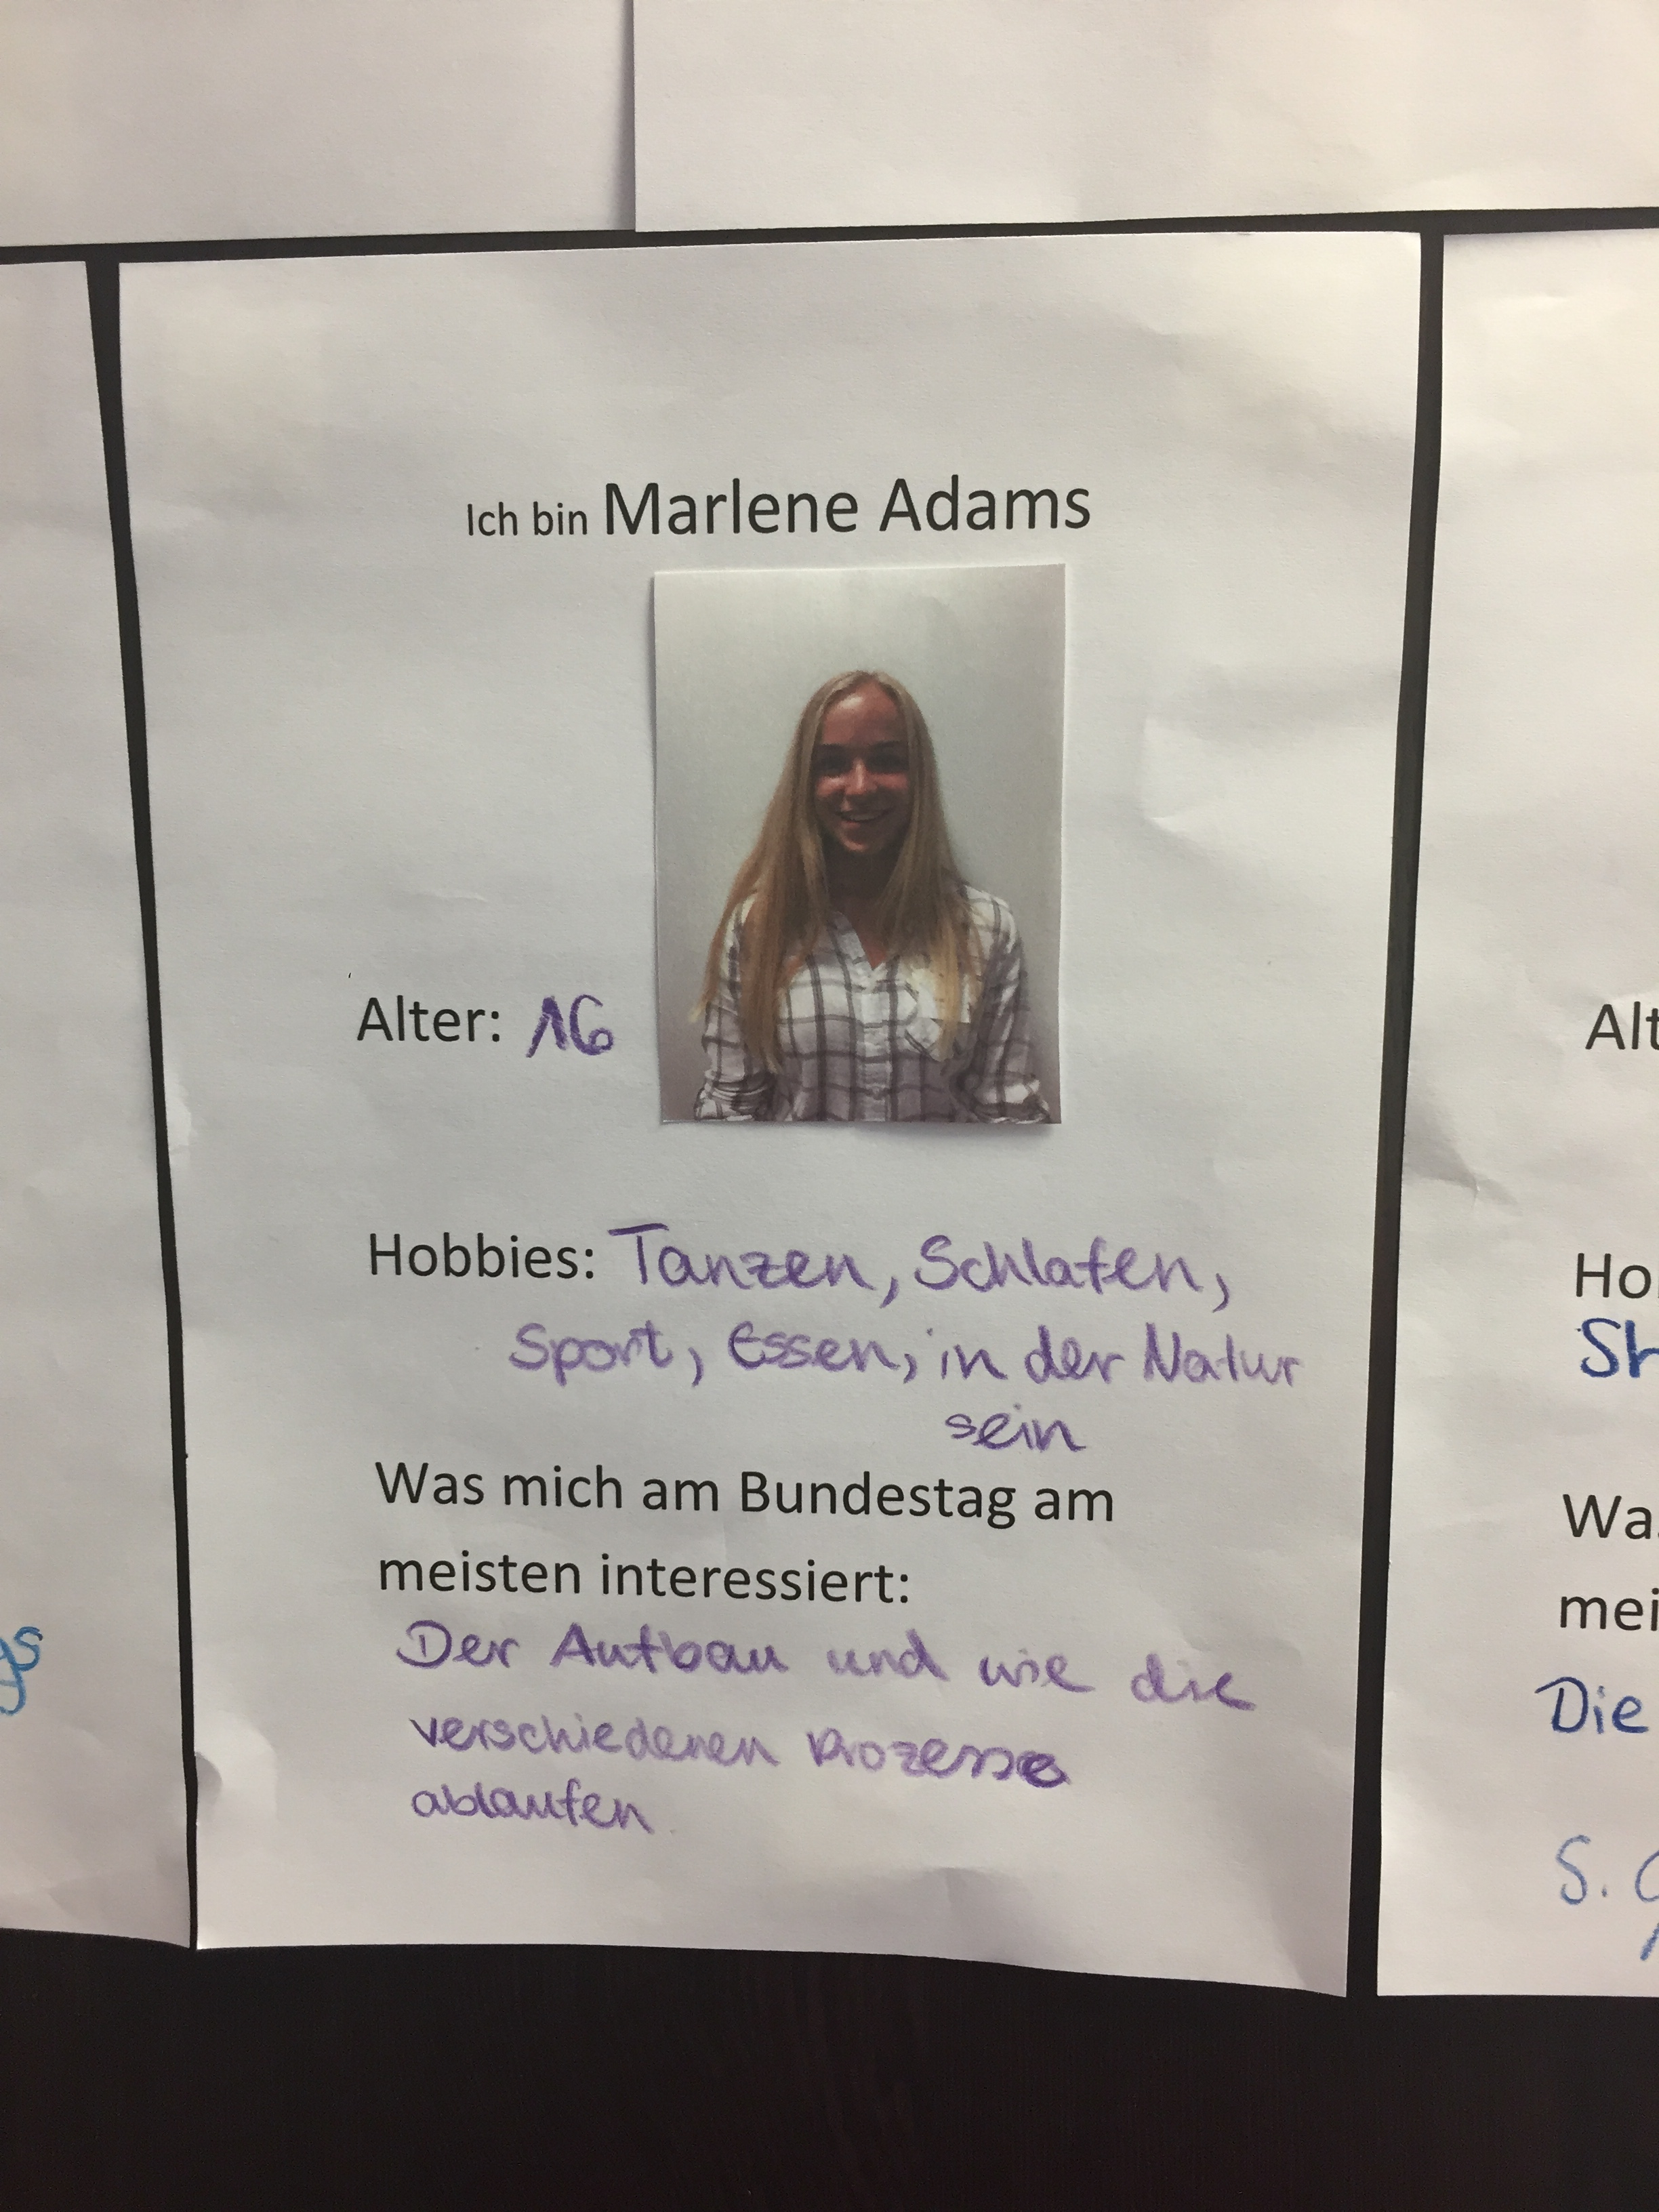 Ich bin Marlene Adams
Alter: 16
Hobbies: Tanzen, Schlafen,
Sport, Essen, in der Natur
sein
Was mich am Bundestag am
meisten interessiert:
Der Aufbau und wie die
verschiedenen Prozesse
ablaufen
gs
Alt
Ho
Sh
Was
mei
Die
S.